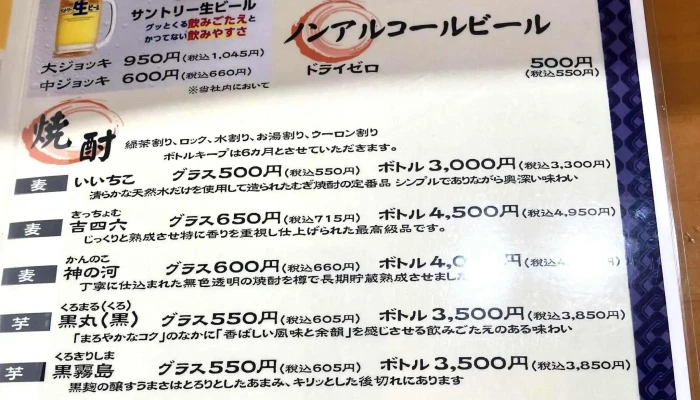 生ビール
サントリー生ビール
グッとくる飲みごたえと
かつてない飲みやすさ
大ジョッキ 950円(税込1,045円)
中ジョッキ 600円(税込660円)
※当社内において
ノンアルコールビール
ドライゼロ 500円
(税込550円)
焼酎
緑茶割り、ロック、水割り、お湯割り、ウーロン割り
ボトルキープは6カ月とさせていただきます。
麦 いいちこ グラス500円(税込550円) ボトル3,000円(税込3,300円)
清らかな天然水だけを使用して造られたむぎ焼酎の定番品 シンプルでありながら奥深い味わい
きっちょむ
麦 吉四六 グラス650円(税込715円) ボトル4,500円(税込4,950円)
じっくりと熟成させ特に香りを重視し仕上げられた最高級品です。
かんのこ
麦 神の河 グラス600円(税込660円) ボトル
丁寧に仕込まれた無色透明の焼酎を樽で長期貯蔵熟成させました
くろまる(くろ)
芋 黒丸(黒) グラス550円(税込605円) ボトル3,500円(税込3,850円)
「まろやかなコク」のなかに「香ばしい風味と余韻」を感じさせる飲みごたえのある味わい
くろきりしま
芋 黒霧島 グラス550円(税込605円) ボトル3,500円(税込3,850円)
黒麹の醸すうまさはとろりとしたあまみ、キリッとした後切れにあります